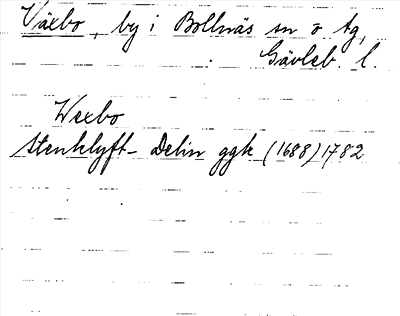 Växbo, by i Bollnäs sn o tg,
Gävleb. l.
Wexbo
Stenklyft- Delin ggk (1688) 1782